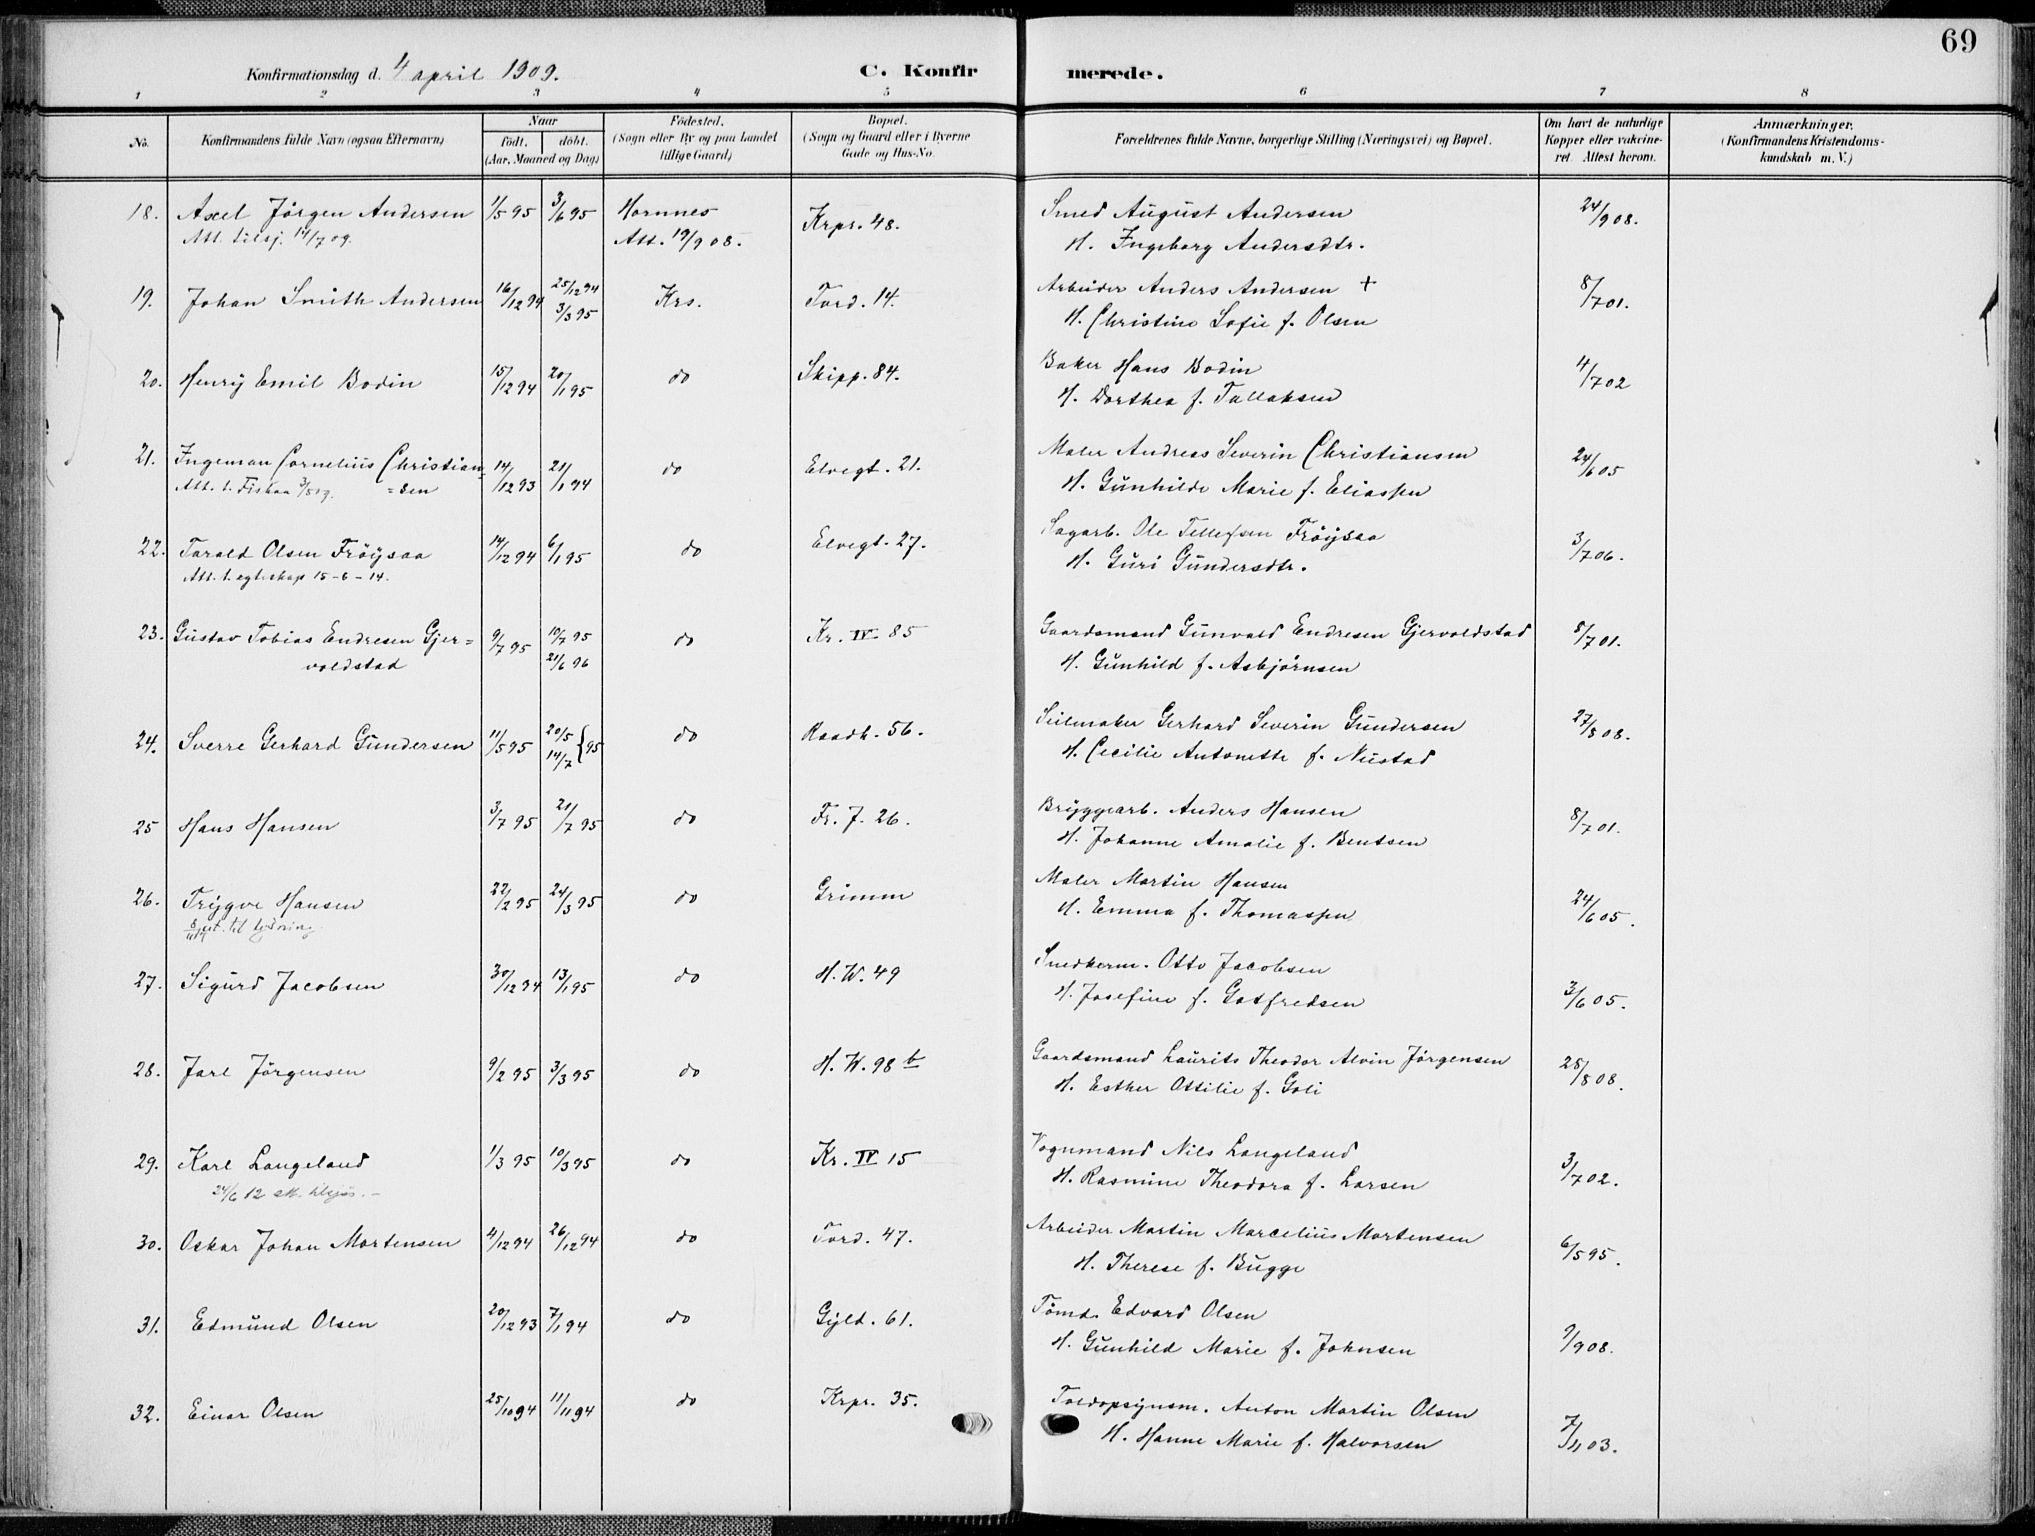 69
Konfirmationsdag d. 4 april 1909. C. Konfirmerede.
1 2 3 4 5 6 7 8
No. Konfirmandens fulde Navn (ogsaa Efternavn) Naar født. døbt. (Aar, Maaned og Dag) Fødested. (Sogn eller By og paa Landet tillige Gaard) Bopæl. (Sogn og Gaard eller i Byerne Gade og Hus-No. Forældrenes fulde Navne, borgerlige Stilling (Næringsvei) og Bopæl. Om havt de naturlige Kopper eller vakcineret. Attest herom. Anmærkninger. (Konfirmandens Kristendomskundskab m. V.)
18. Axel Jörgen Andersen 1/5 95 3/6 95 Hornnes Krpr. 48. Smed August Andersen 24/9 08.
Att. tilsj. 14/7 09. Att. 19/9 08. H. Ingeborg Andersdtr.
19. Johan Smith Andersen 16/12 94 25/12 94 3/3 95 Krs. Tord. 14. Arbeider Anders Andersen + 8/7 01.
H. Christine Sofie f. Olsen
20. Henry Emil Bodin 15/12 94 20/1 95 do Skipp. 84. Baker Hans Bodin 4/7 02
H. Dorthea f. Tallaksen
21. Ingeman Cornelius Christian= 14/12 93 21/1 94 do Elvegt. 21. Maler Andreas Severin Christiansen 24/6 05
Att. t. Fiskaa =sen H. Gunhilde Marie f. Eliassen
22. Tarald Olsen Fröysaa 14/12 94 6/1 95 do Elvegt. 27. Sagarb. Ole Tellefsen Fröysaa 3/7 06.
Att. t. egteskap 15-6-14. H. Guri Gundersdtr.
23. Gustav Tobias Endresen Gjer= 9/7 95 10/7 95 21/6 96 do Kr. IV 85 Gaardsmand Gunvald Endresen Gjervoldstad 8/7 01.
voldstad H. Gunhild f. Asbjørnsen
24. Sverre Gerhard Gundersen 11/5 95 20/5 14/7 } 95 do Raadh. 56. Seilmaker Gerhard Severin Gundersen 27/8 08.
H. Cecilie Antonette f. Nustad
25 Hans Hansen 3/7 95 21/7 95 do Fr. 7. 26. Bryggearb. Anders Hansen 8/7 01.
H. Johanne Amalie f. Bentsen
26. Trygve Hansen 22/2 95 24/3 95 do Grimm Maler Martin Hansen 24/6 05.
att. til lysning H. Emma f. Thomassen
27. Sigurd Jacobsen 30/12 94 13/1 95 do H. W. 49 Snedkerm. Otto Jacobsen 3/6 05.
H. Josefine f. Gotfredsen
28. Jarl Jörgensen 9/2 95 3/3 95 do H. W. 98 b Gaardsmand Laurits Theodor Alvin Jörgensen 28/8 08.
H. Esther Ottilie f. Goli
29. Karl Langeland 1/3 95 10/3 95 do Kr. IV 15 Vognmand Nils Langeland 3/7 02.
24/6 12 att. tilsjös. H. Rasmine Theodora f. Larsen
30. Oskar Johan Mortensen 4/12 94 26/12 94 do Tord. 47. Arbeider Martin Marcelius Mortensen 6/5 95.
H. Therese f. Bugge
31. Edmund Olsen 20/12 93 7/1 94 do Gyld. 61. Tömd. Edvard Olsen 9/9 08.
H. Gunhild Marie f. Johnsen
32. Einar Olsen 25/10 94 11/11 94 do Krpr. 35. Toldopsynsm. Anton Martin Olsen 7/11 03.
H. Hanne Marie f. Halvorsen